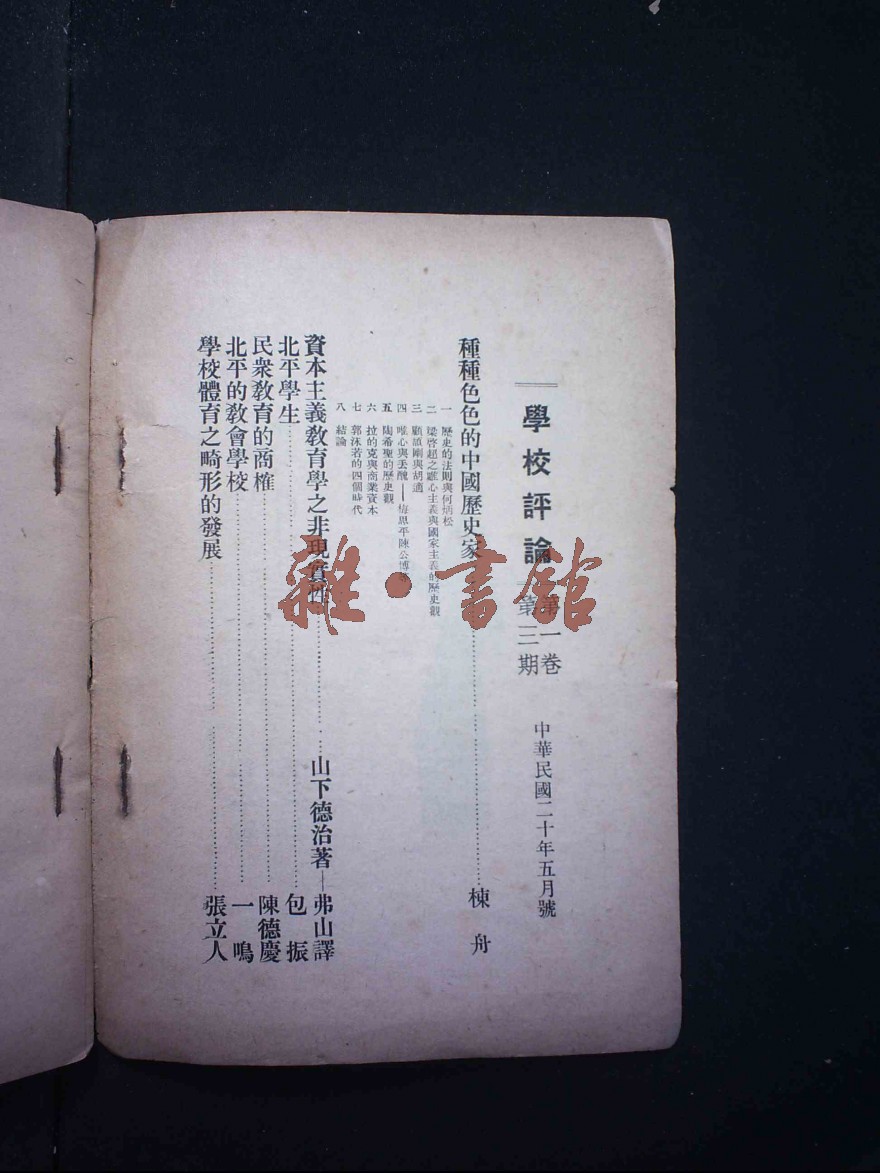 學校評論 第一卷 第三期 中華民國二十年五月號
種種色色的中國歷史家 棟舟
一 歷史的法則與何炳松
二 梁啓超之唯心主義與國家主義的歷史觀
三 顧頡剛與胡適
四 唯心與丟醜——梅思平陳公博
五 陶希聖的歷史觀
六 拉的克與商業資本
七 郭沫若的四個時代
八 結論
資本主義教育學之非現實性 山下德治著—弗山譯
北平學生 包振
民衆教育的商榷 陳德慶
北平的教會學校 一鳴
學校體育之畸形的發展 張立人
雜·書館